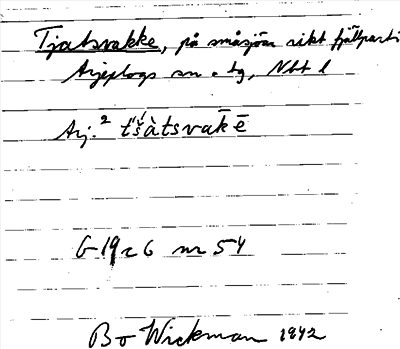 Tjatsvakke, på småsjöar rikt fjällparti
Arjeplogs sn o tg, Nbt l
Arj.² t́šàtsvak̄ē
G 19 c 6 nr 54
Bo Wickman 1942